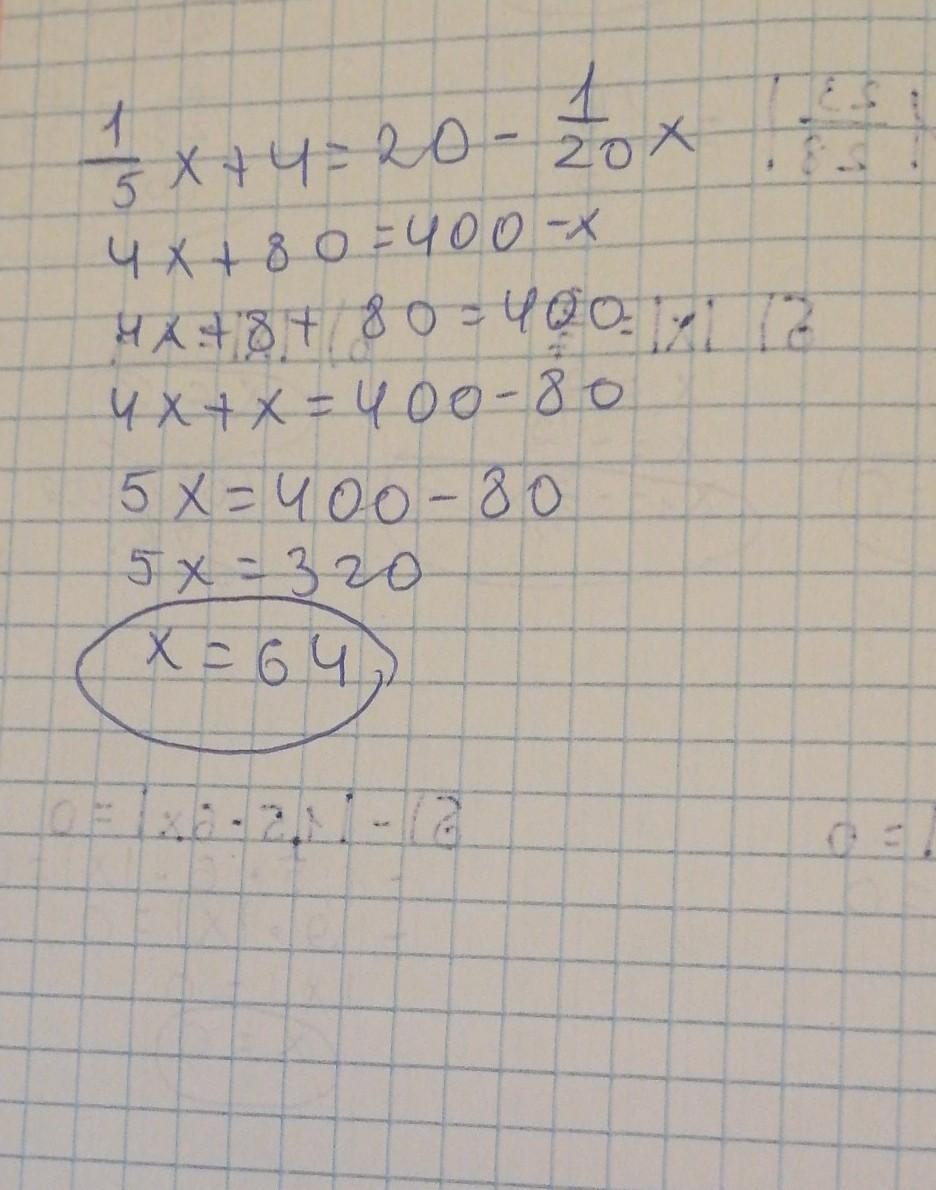 1/5 x + 4 = 20 - 1/20 x
4x + 80 = 400 - x
4x + 8 + 80 = 400
4x + x = 400 - 80
5x = 400 - 80
5x = 320
x = 64